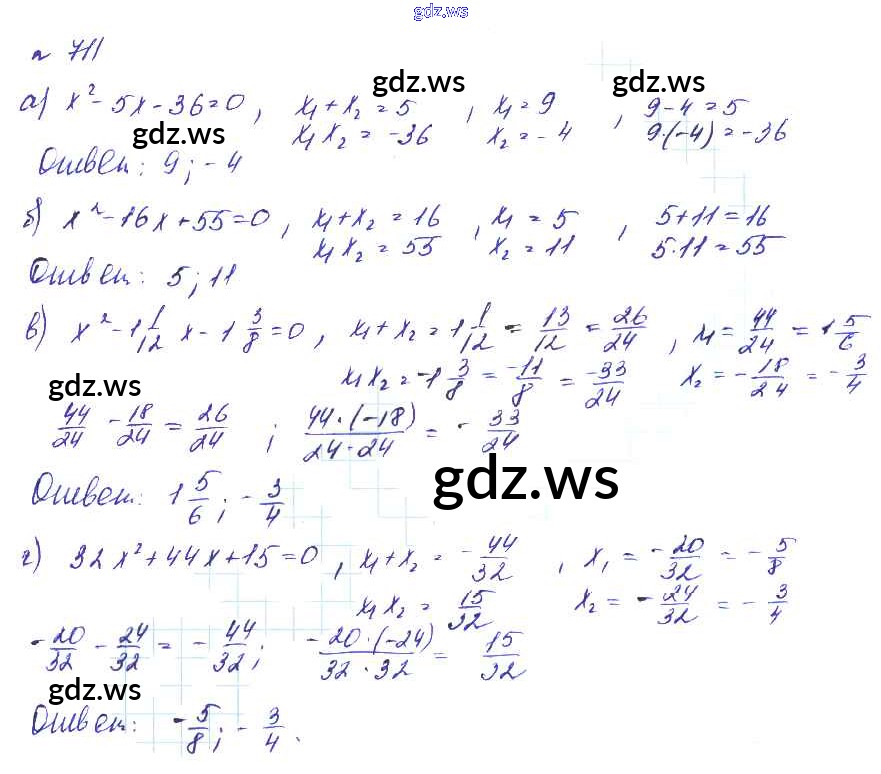 gdz.ws
n 711
gdz.ws gdz.ws
а) x² - 5x - 36 = 0, x₁ + x₂ = 5, x₁ = 9, 9 - 4 = 5
x₁x₂ = -36 x₂ = -4 9·(-4) = -36
gdz.ws
Ответ: 9; -4
б) x² - 16x + 55 = 0, x₁ + x₂ = 16, x₁ = 5, 5 + 11 = 16
x₁x₂ = 55 x₂ = 11 5·11 = 55
Ответ: 5; 11
в) x² - 1 1/12 x - 1 3/8 = 0, x₁ + x₂ = 1 1/12 = 13/12 = 26/24, x₁ = 44/24 = 1 5/6
x₁x₂ = -1 3/8 = -11/8 = -33/24 x₂ = -18/24 = -3/4
gdz.ws
44/24 - 18/24 = 26/24; 44·(-18)/24·24 = -33/24
gdz.ws
Ответ: 1 5/6; -3/4
г) 32x² + 44x + 15 = 0, x₁ + x₂ = -44/32, x₁ = -20/32 = -5/8
x₁x₂ = 15/32 x₂ = -24/32 = -3/4
-20/32 - 24/32 = -44/32; -20·(-24)/32·32 = 15/32
gdz.ws
Ответ: -5/8; -3/4.